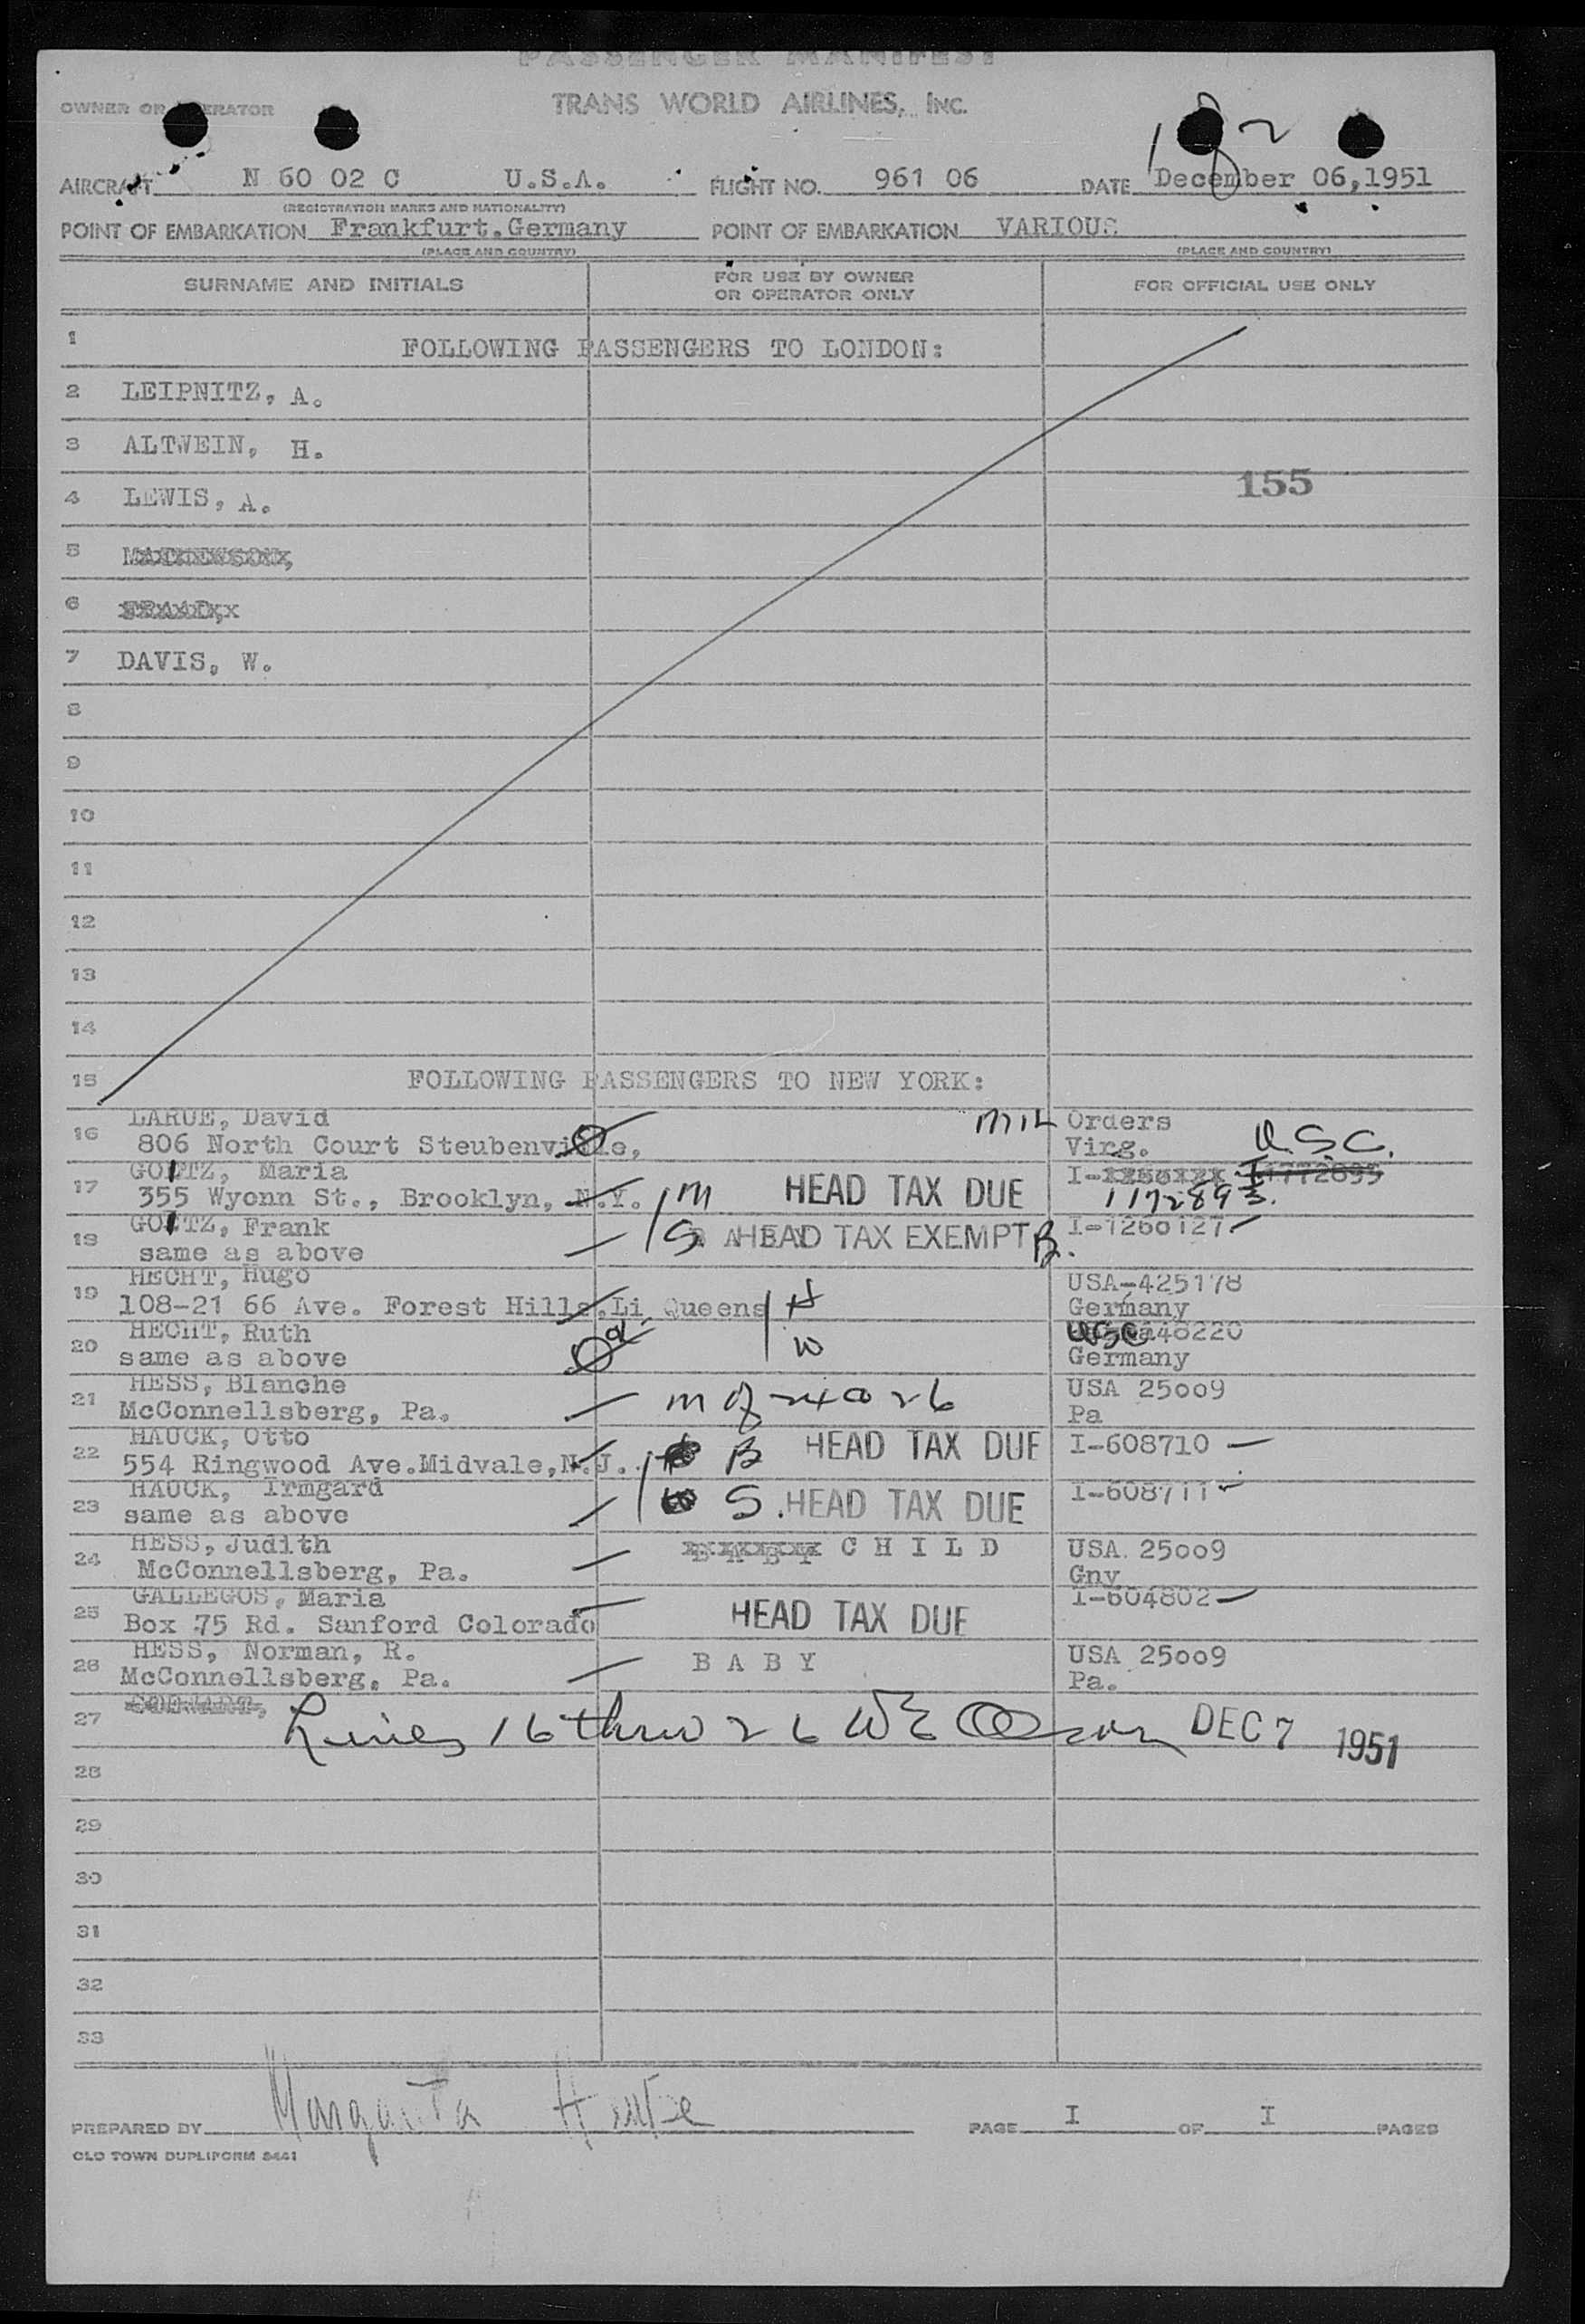 PASSENGER MANIFEST
OWNER OR OPERATOR TRANS WORLD AIRLINES, INC.
182
AIRCRAFT N 60 02 C U.S.A. FLIGHT NO. 961 06 DATE December 06,1951
(REGISTRATION MARKS AND NATIONALITY)
POINT OF EMBARKATION Frankfurt.Germany POINT OF EMBARKATION VARIOUS
(PLACE AND COUNTRY) (PLACE AND COUNTRY)
SURNAME AND INITIALS FOR USE BY OWNER OR OPERATOR ONLY FOR OFFICIAL USE ONLY
1 FOLLOWING PASSENGERS TO LONDON:
2 LEIPNITZ, A.
3 ALTWEIN, H.
155
4 LEWIS, A.
5
6
7 DAVIS, W.
8
9
10
11
12
13
14
15 FOLLOWING PASSENGERS TO NEW YORK:
16 LARUE, David Mil Orders
806 North Court Steubenville, Virg. U.S.C.
17 GOETZ, Maria I-
355 Wyonn St., Brooklyn, N.Y. 1 M HEAD TAX DUE 1172893.
18 GOETZ, Frank S HEAD TAX EXEMPT B. I-1260127
same as above
19 HECHT, Hugo USA-425178
108-21 66 Ave. Forest Hills.Li. Queens H Germany
20 HECHT, Ruth USC 48220
same as above W Germany
21 HESS, Blanche USA 25009
McConnellsberg, Pa. M of 24 & 26 Pa
22 HAUCK, Otto B HEAD TAX DUE I-608710
554 Ringwood Ave.Midvale,N.J.
23 HAUCK, Irmgard S. HEAD TAX DUE I-608711
same as above
24 HESS, Judith BABY CHILD USA 25009
McConnellsberg, Pa. Gny
25 GALLEGOS, Maria HEAD TAX DUE I-604802
Box 75 Rd. Sanford Colorado
26 HESS, Norman, R. BABY USA 25009
McConnellsberg, Pa. Pa.
27 Lines 16 thru 26 WE Olson DEC 7 1951
28
29
30
31
32
33
PREPARED BY Margarita PAGE I OF I PAGES
OLD TOWN DUPLIFORM 8441